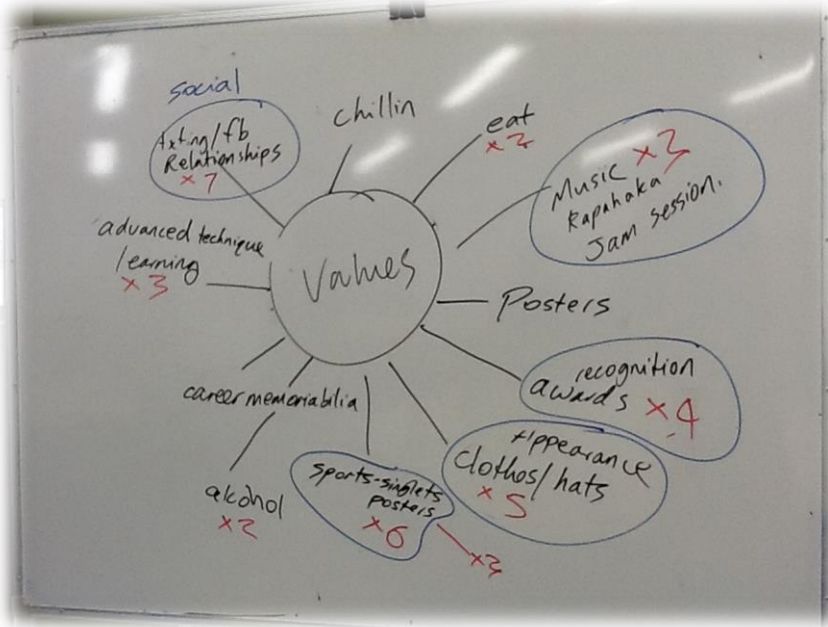 social
txting/fb
Relationships
x7
chillin
eat
x2
Music x3
Kapahaka
Jam session.
advanced technique
learning
x3
Values
Posters
recognition
awards x4
Appearance
clothes/hats
x5
career memoriabilia
sports-singlets
posters
x6
x3
alcohol
x2